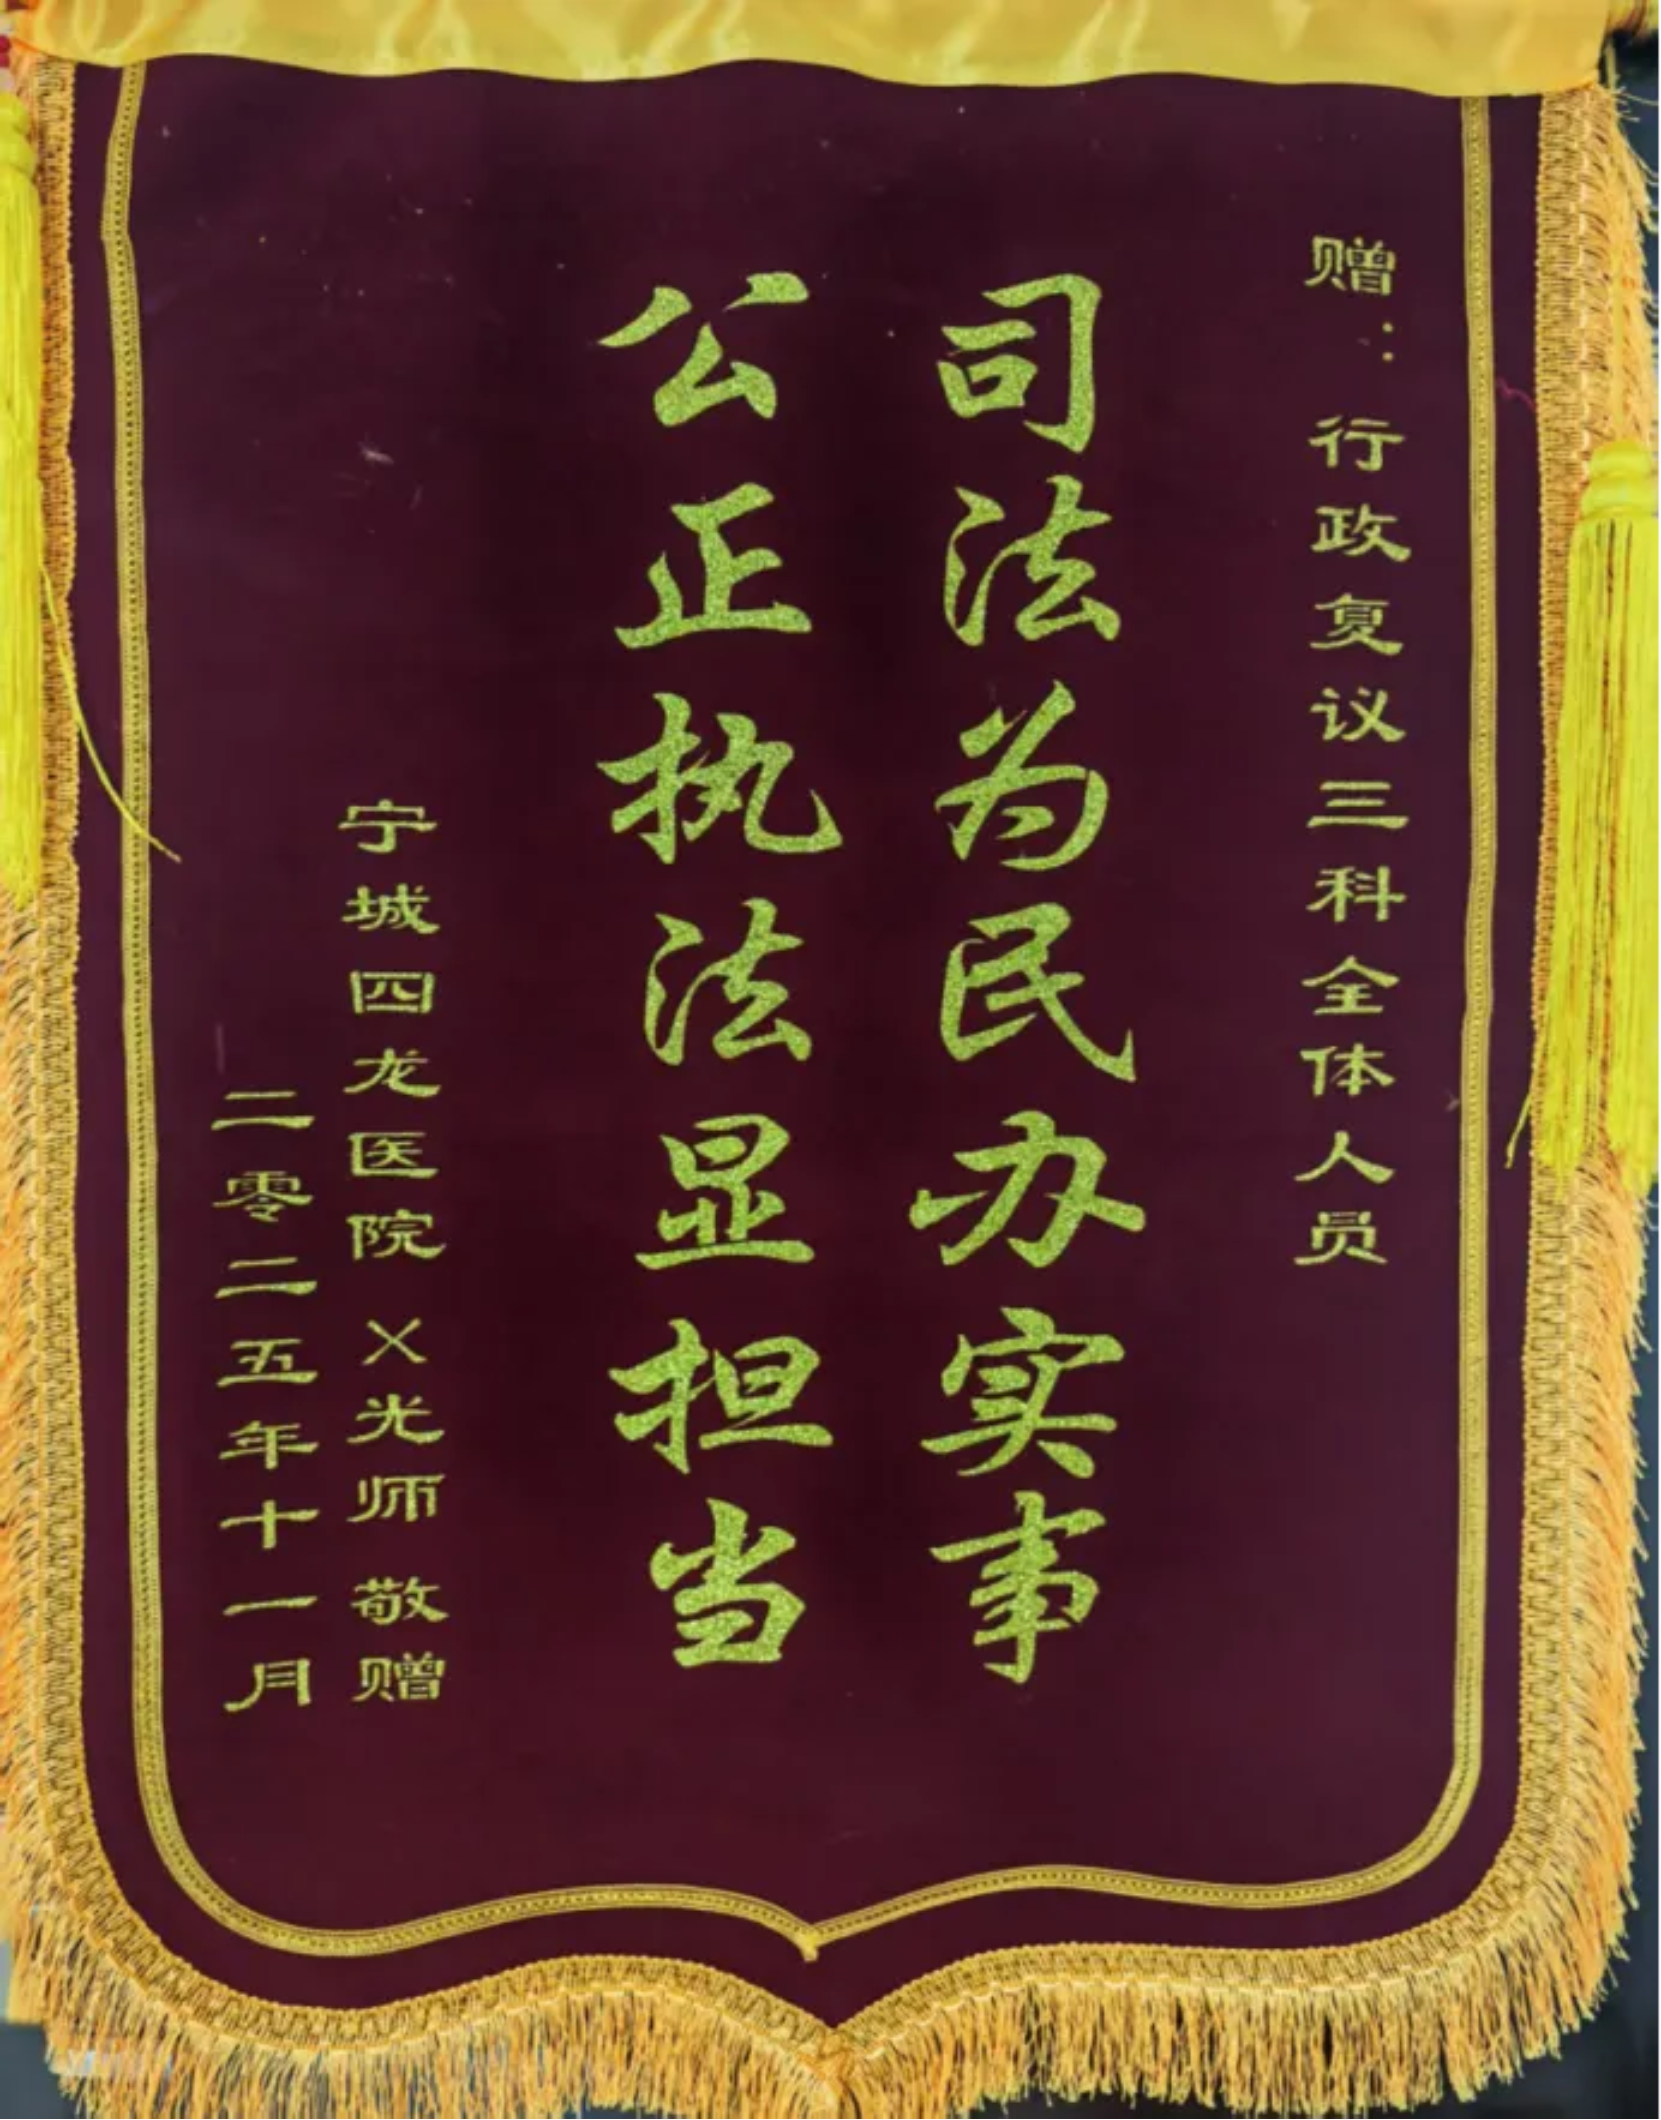 赠：行政复议三科全体人员
司法为民办实事
公正执法显担当
宁城四龙医院 X光师 敬赠
二零二五年十一月